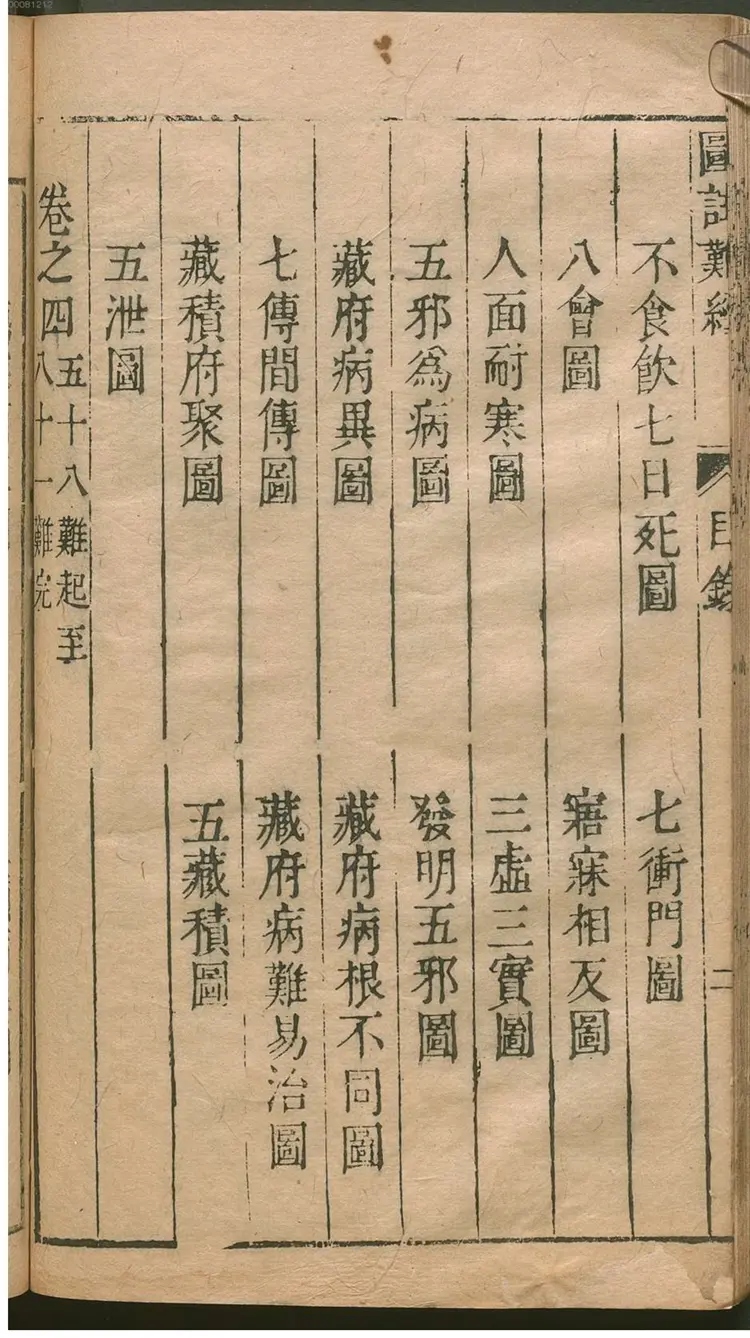 00081212
圖註難經 目錄 二
不食飲七日死圖 七衝門圖
八會圖 寤寐相反圖
人面耐寒圖 三虛三實圖
五邪爲病圖 發明五邪圖
藏府病異圖 藏府病根不同圖
七傳間傳圖 藏府病難易治圖
藏積府聚圖 五藏積圖
五泄圖
卷之四 五十八難起至
八十一難完